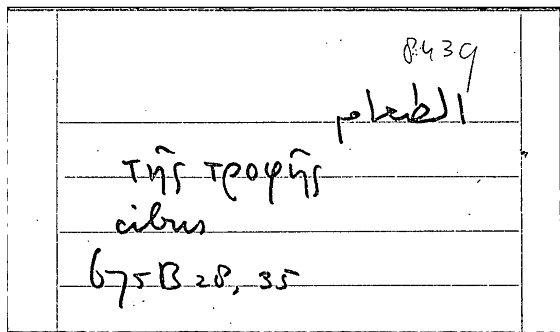 8439
الطعام
τῆς τροφῆς
cibus
675B 28, 35